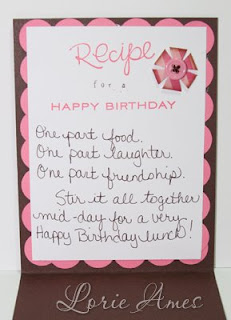 Recipe
for a
HAPPY BIRTHDAY
One part food.
One part laughter.
One part friendship.
Stir it all together
mid-day for a very
Happy Birthday lunch!
Lorie Ames